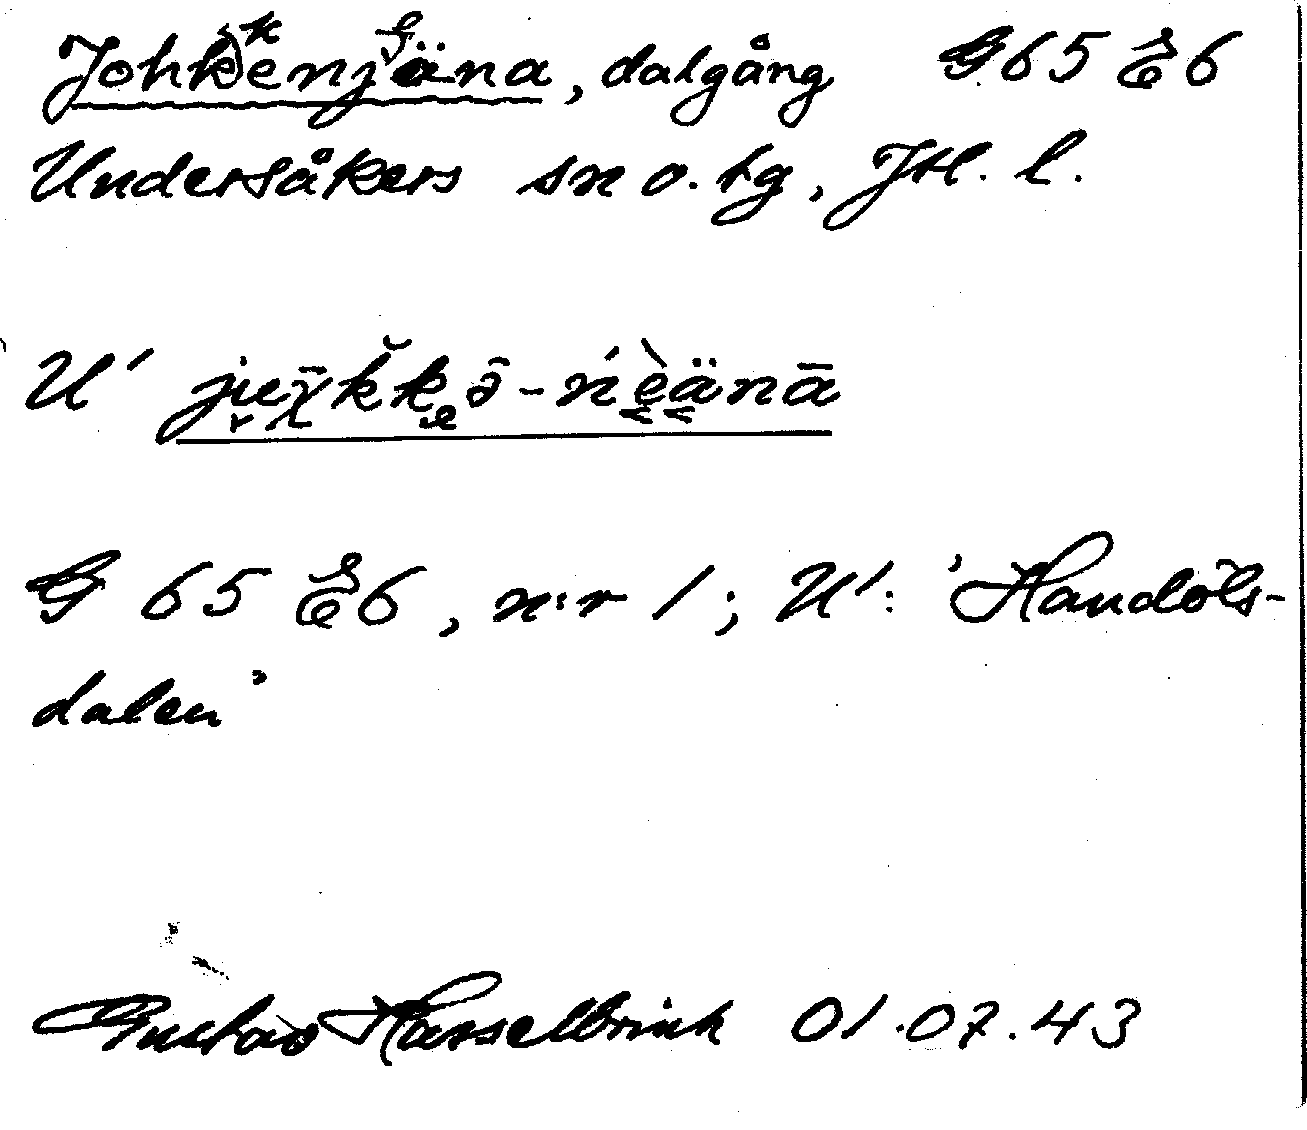 Johkenjäna, dalgång G 65 E 6
Undersåkers sn o. tg, Jtl. l.
U'
G 65 E 6, n:r 1; U': 'Handöls-
dalen'
Gustav Hasselbrink 01.07.43